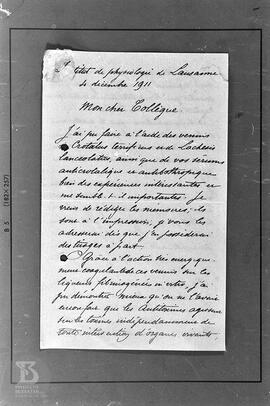 Institut de physiologie de Lausanne
4 décembre 1911
Mon cher Collègue.
J'ai pu faire à l'aide des venins
de Crotalus terrificus et de Lachesis
lanceolatus, ainsi que de vos sérums
anticrotalique et antibothropique
bien des expériences intéressantes et
me semble-t-il importantes. Je
viens de rédiger les mémoires; ils
sont à l'impression; je vous les
adresserai dès que j'en posséderai
des tirages à part.
Grâce à l'action très énergique-
ment coagulante de ces venins sur les
liqueurs fibrinogènes in vitro, j'ai
pu démontrer mieux qu'on ne l'avait
encore fait que les Antitoxines agissent
sur les toxines indépendamment de
toute intervention d'organes vivants.
B 5 (182 X 257)